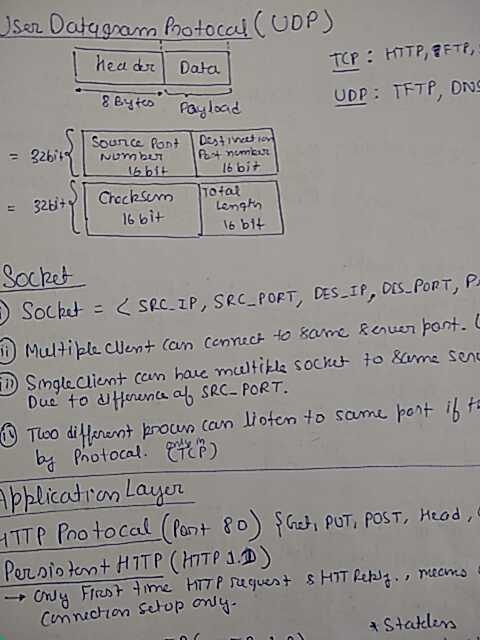 User Datagram Protocal (UDP)
Header Data
8 Bytes Payload
TCP : HTTP, FTP,
UDP : TFTP, DNS
= 32bit { Source Port Number 16 bit Destination Port number 16 bit
= 32bit { Checksum 16 bit Total Length 16 bit
Socket
i) Socket = < SRC_IP, SRC_PORT, DES_IP, DIS_PORT, P
ii) Multiple client can connect to same server port. (
iii) Single client can have multiple socket to same
Due to difference of SRC_PORT.
iv) Two different process can listen to same port if
by Protocal. (only in TCP)
Application Layer
HTTP Protocal (Port 80) { Get, PUT, POST, Head,
Persistant HTTP (HTTP 1.1)
→ only First time HTTP request & HTT Reply., means
Connection setup only.
* Stateless